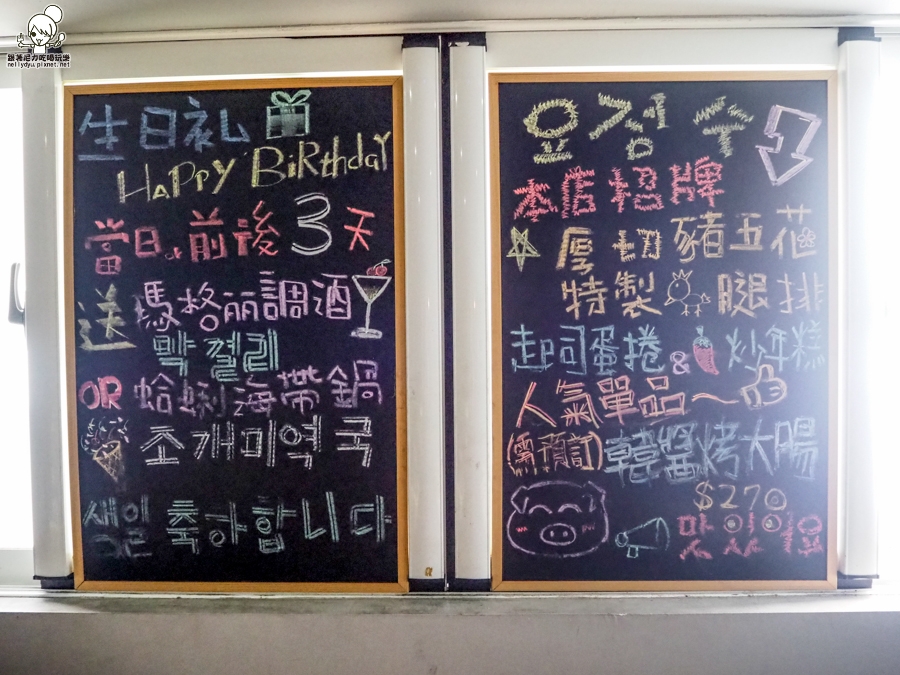 跟著尼力吃喝玩樂
nellydyu.pixnet.net
生日礼
HAPPY BiRthdaY
當日。前後3天
送瑪格丽調酒
막걸리
OR 蛤蜊海帶鍋
조개미역국
새일
축하합니다
요정수
本店招牌
厚切豬五花
特製腿排
起司蛋捲&炒年糕
人氣單品~
(需預訂)韓醬烤大腸
$270
맛있어요